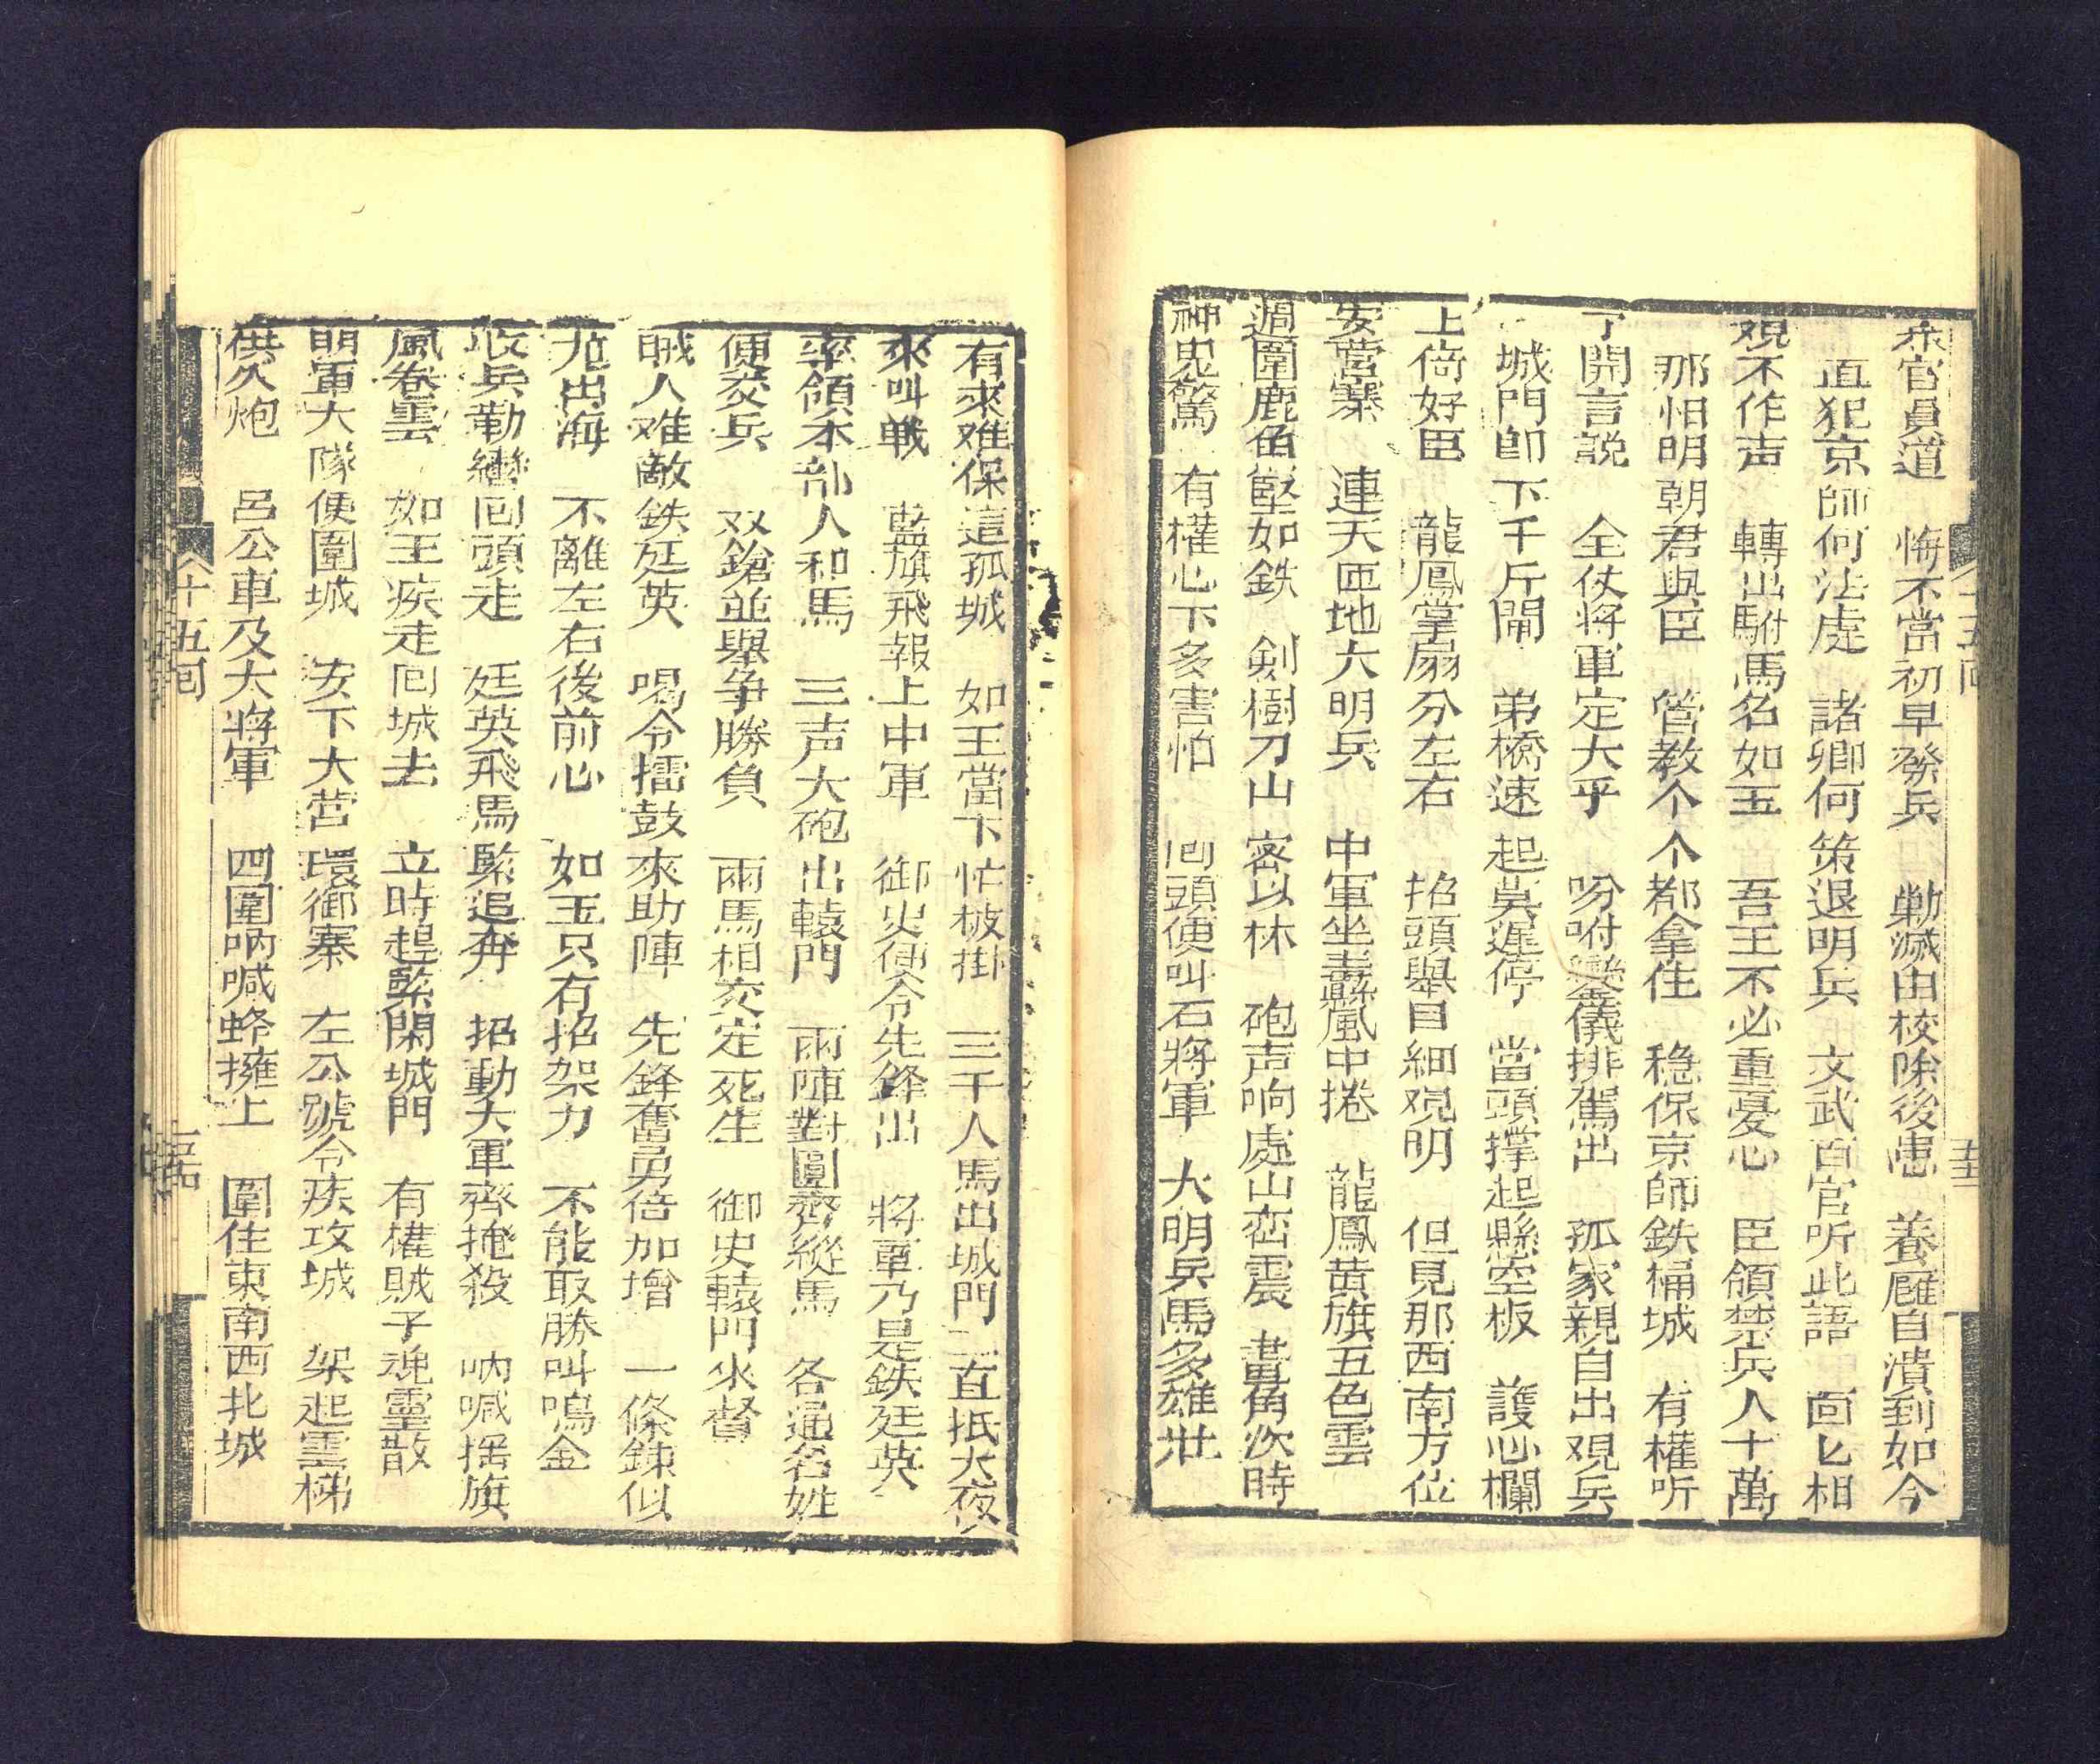 衆官員道 悔不當初早發兵 勦滅由校除後患 養廱自潰到如今
直犯京師何法處 諸卿何策退明兵 文武百官听此語 面匕相
观不作声 轉出駙馬名如玉 吾王不必重憂心 臣領禁兵人十萬
那怕明朝君與臣 管教个个都拿住 穏保京師鉄桶城 有權听
了開言說 全仗将軍定大乎 吩咐鑾儀排駕出 孤家親自出观兵
城門卽下千斤閘 弟橋速起莫遲停 當頭撑起縣空板 護心欄
上倚好臣 龍鳳掌扇分左右 招頭舉目細观明 但見那西南方位
安營寨 連天匝地大明兵 中軍坐纛風中捲 龍鳳黄旗五色雲
過圍鹿角堅如鉄 剣樹刀山宻以林 砲声响處山峦震 畫角次時
神鬼驚 有權心下多害怕 囬頭便叫石將軍 大明兵馬多雄壮
十五囬
有來难保這孤城 如王當下忙披掛 三千人馬出城門 直抵大
來叫戦 藍旗飛報上中軍 御史便令先鋒出 將軍乃是鉄廷英
率領本部人和馬 三声大砲出轅門 兩陣對圓齊縱馬 各通名姓
便交兵 双鎗並舉争勝負 兩馬相交定死生 御史轅門來督
賊人难敵鉄廷英 喝令擂鼓來助陣 先鋒奮勇倍加增 一條錬似
龙出海 不離左右後前心 如玉只有招架力 不能取勝叫鳴金
收兵勒轡囬頭走 廷英飛馬緊追奔 招動大軍齊掩殺 吶喊揺旗
風卷雲 如王疾走囬城去 立時趕緊閑城門 有權賊子魂靈散
明軍大隊便圍城 安下大营環御寨 左公號令疾攻城 架起雲梯
供久炮 呂公車及大將軍 四圍吶喊蜂擁上 圍住東南西北城
十五囬